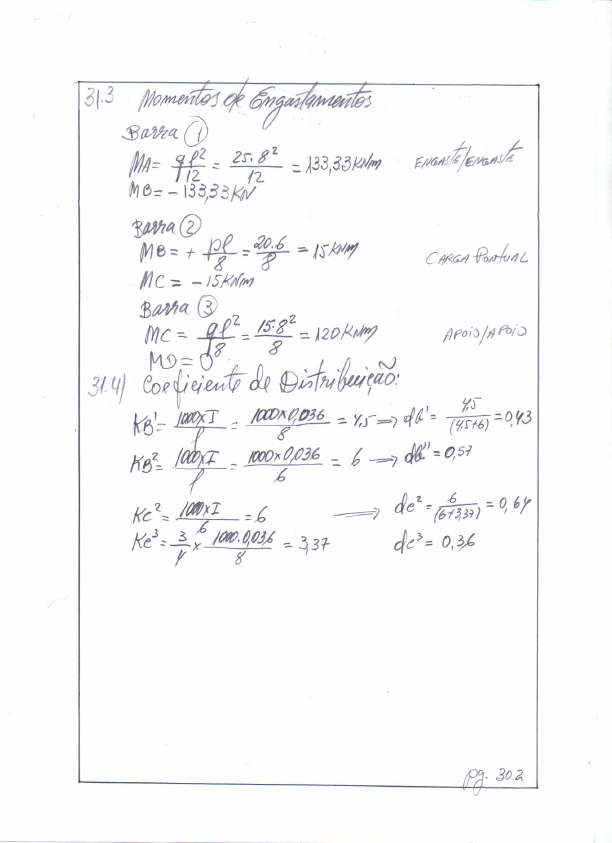 31.3 Momentos de Engastamentos
Barra ①
MA = ql²/12 = 25.8²/12 = 133,33 KNm ENGASTE/ENGASTE
MB = - 133,33 KN
Barra ②
MB = + pl/8 = 20.6/8 = 15 KNM CARGA PONTUAL
MC = - 15 KNm
Barra ③
MC = ql²/8 = 15.8²/8 = 120 KNM APOIO/APOIO
MD = 0
31.4) Coeficiente de Distribuição:
KB¹ = 1000xI/l = 1000x0,036/8 = 4,5 => db' = 4,5/(4,5+6) = 0,43
KB² = 1000xI/l = 1000x0,036/6 = 6 => db'' = 0,57
Kc² = 1000xI/6 = 6 => dc² = 6/(6+3,37) = 0,64
Kc³ = 3/4 x 1000.0,036/8 = 3,37 dc³ = 0,36
pg. 30.2